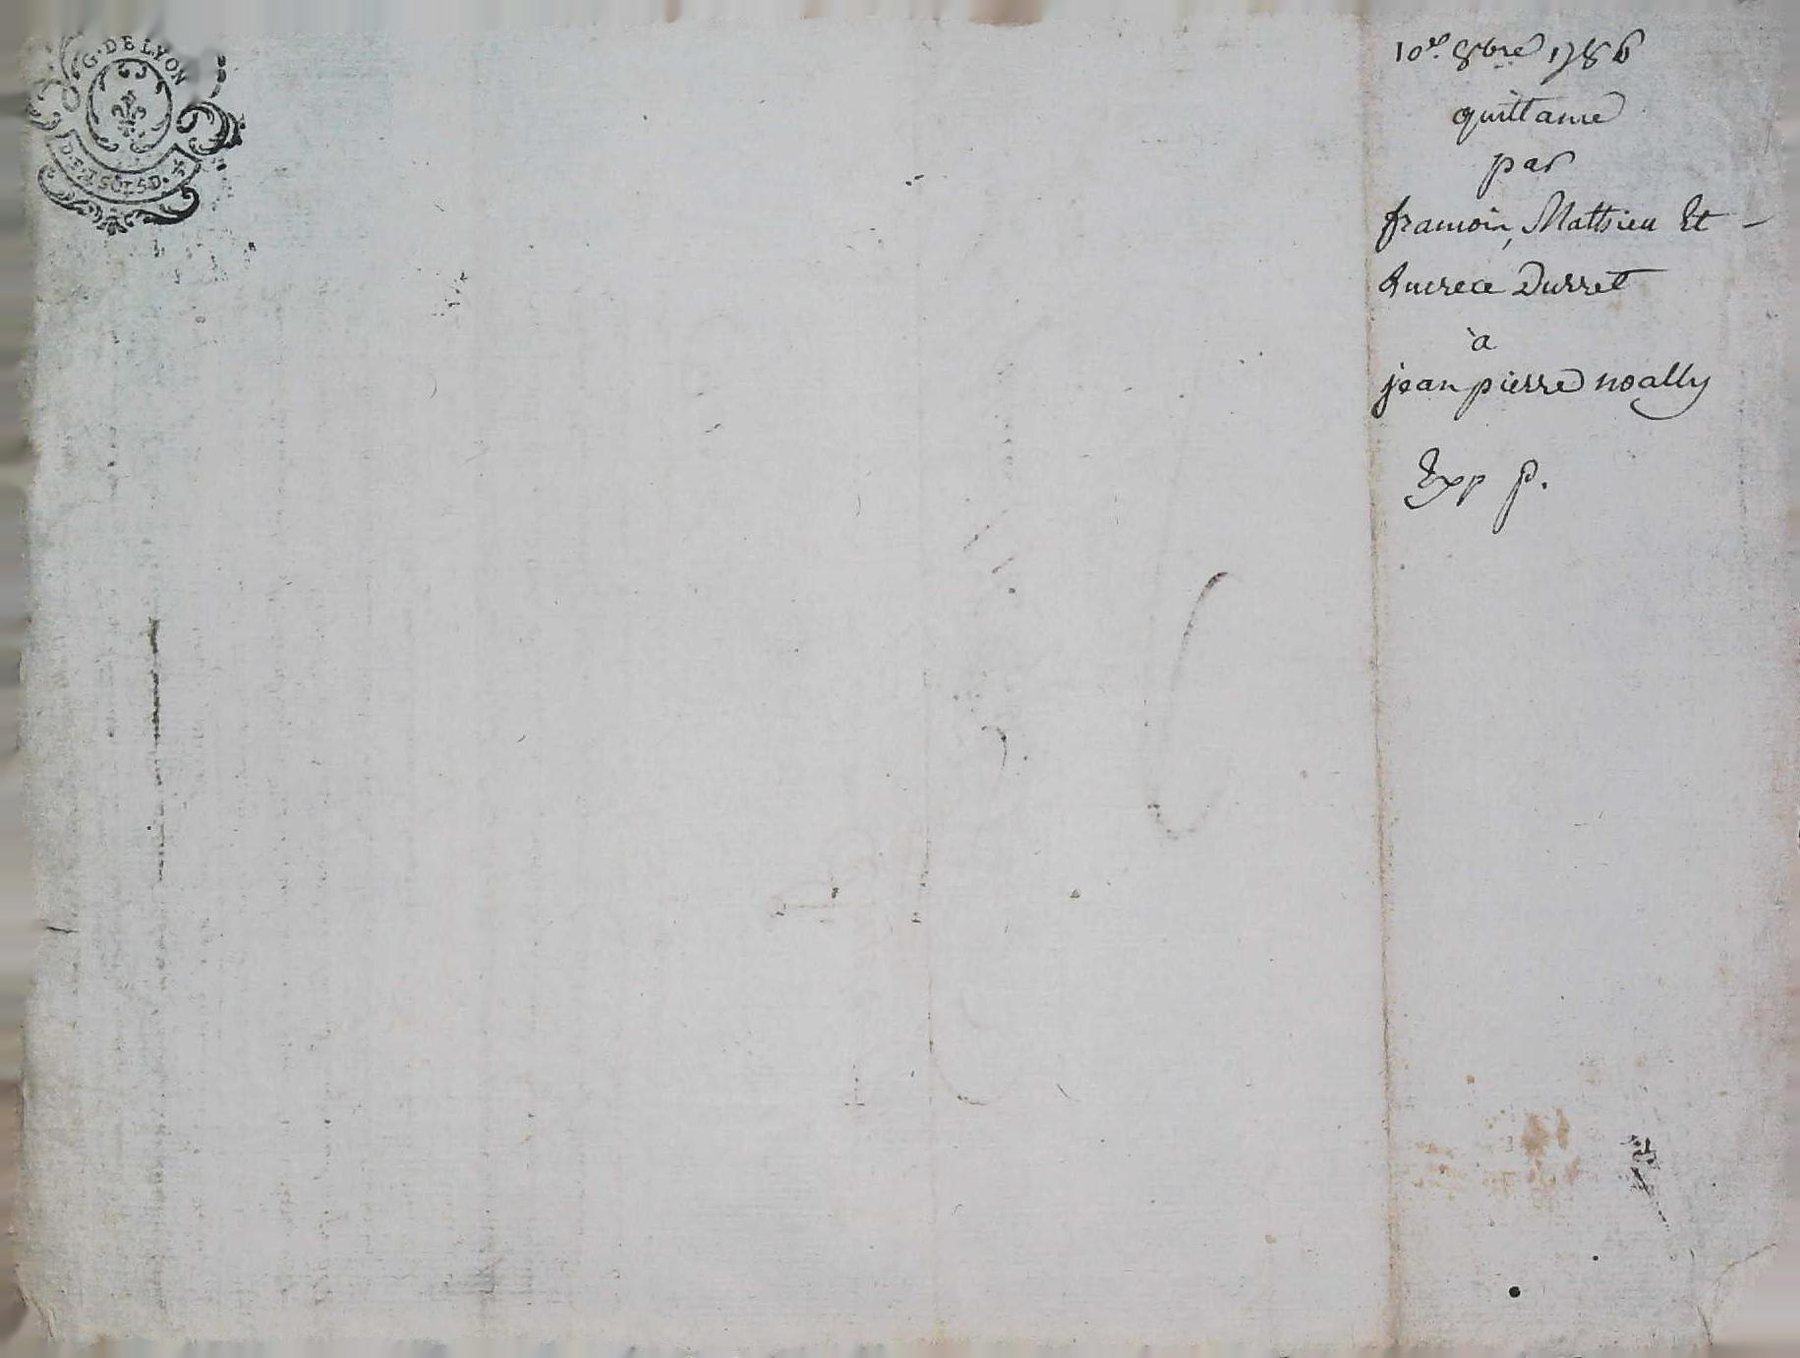 G. DE LYON
DE 2 SOLS D.
10e. 8bre 1786
quittance
par
francois, Mathieu Et -
Lucrece Durret
à
jean pierre noally
Exp p.